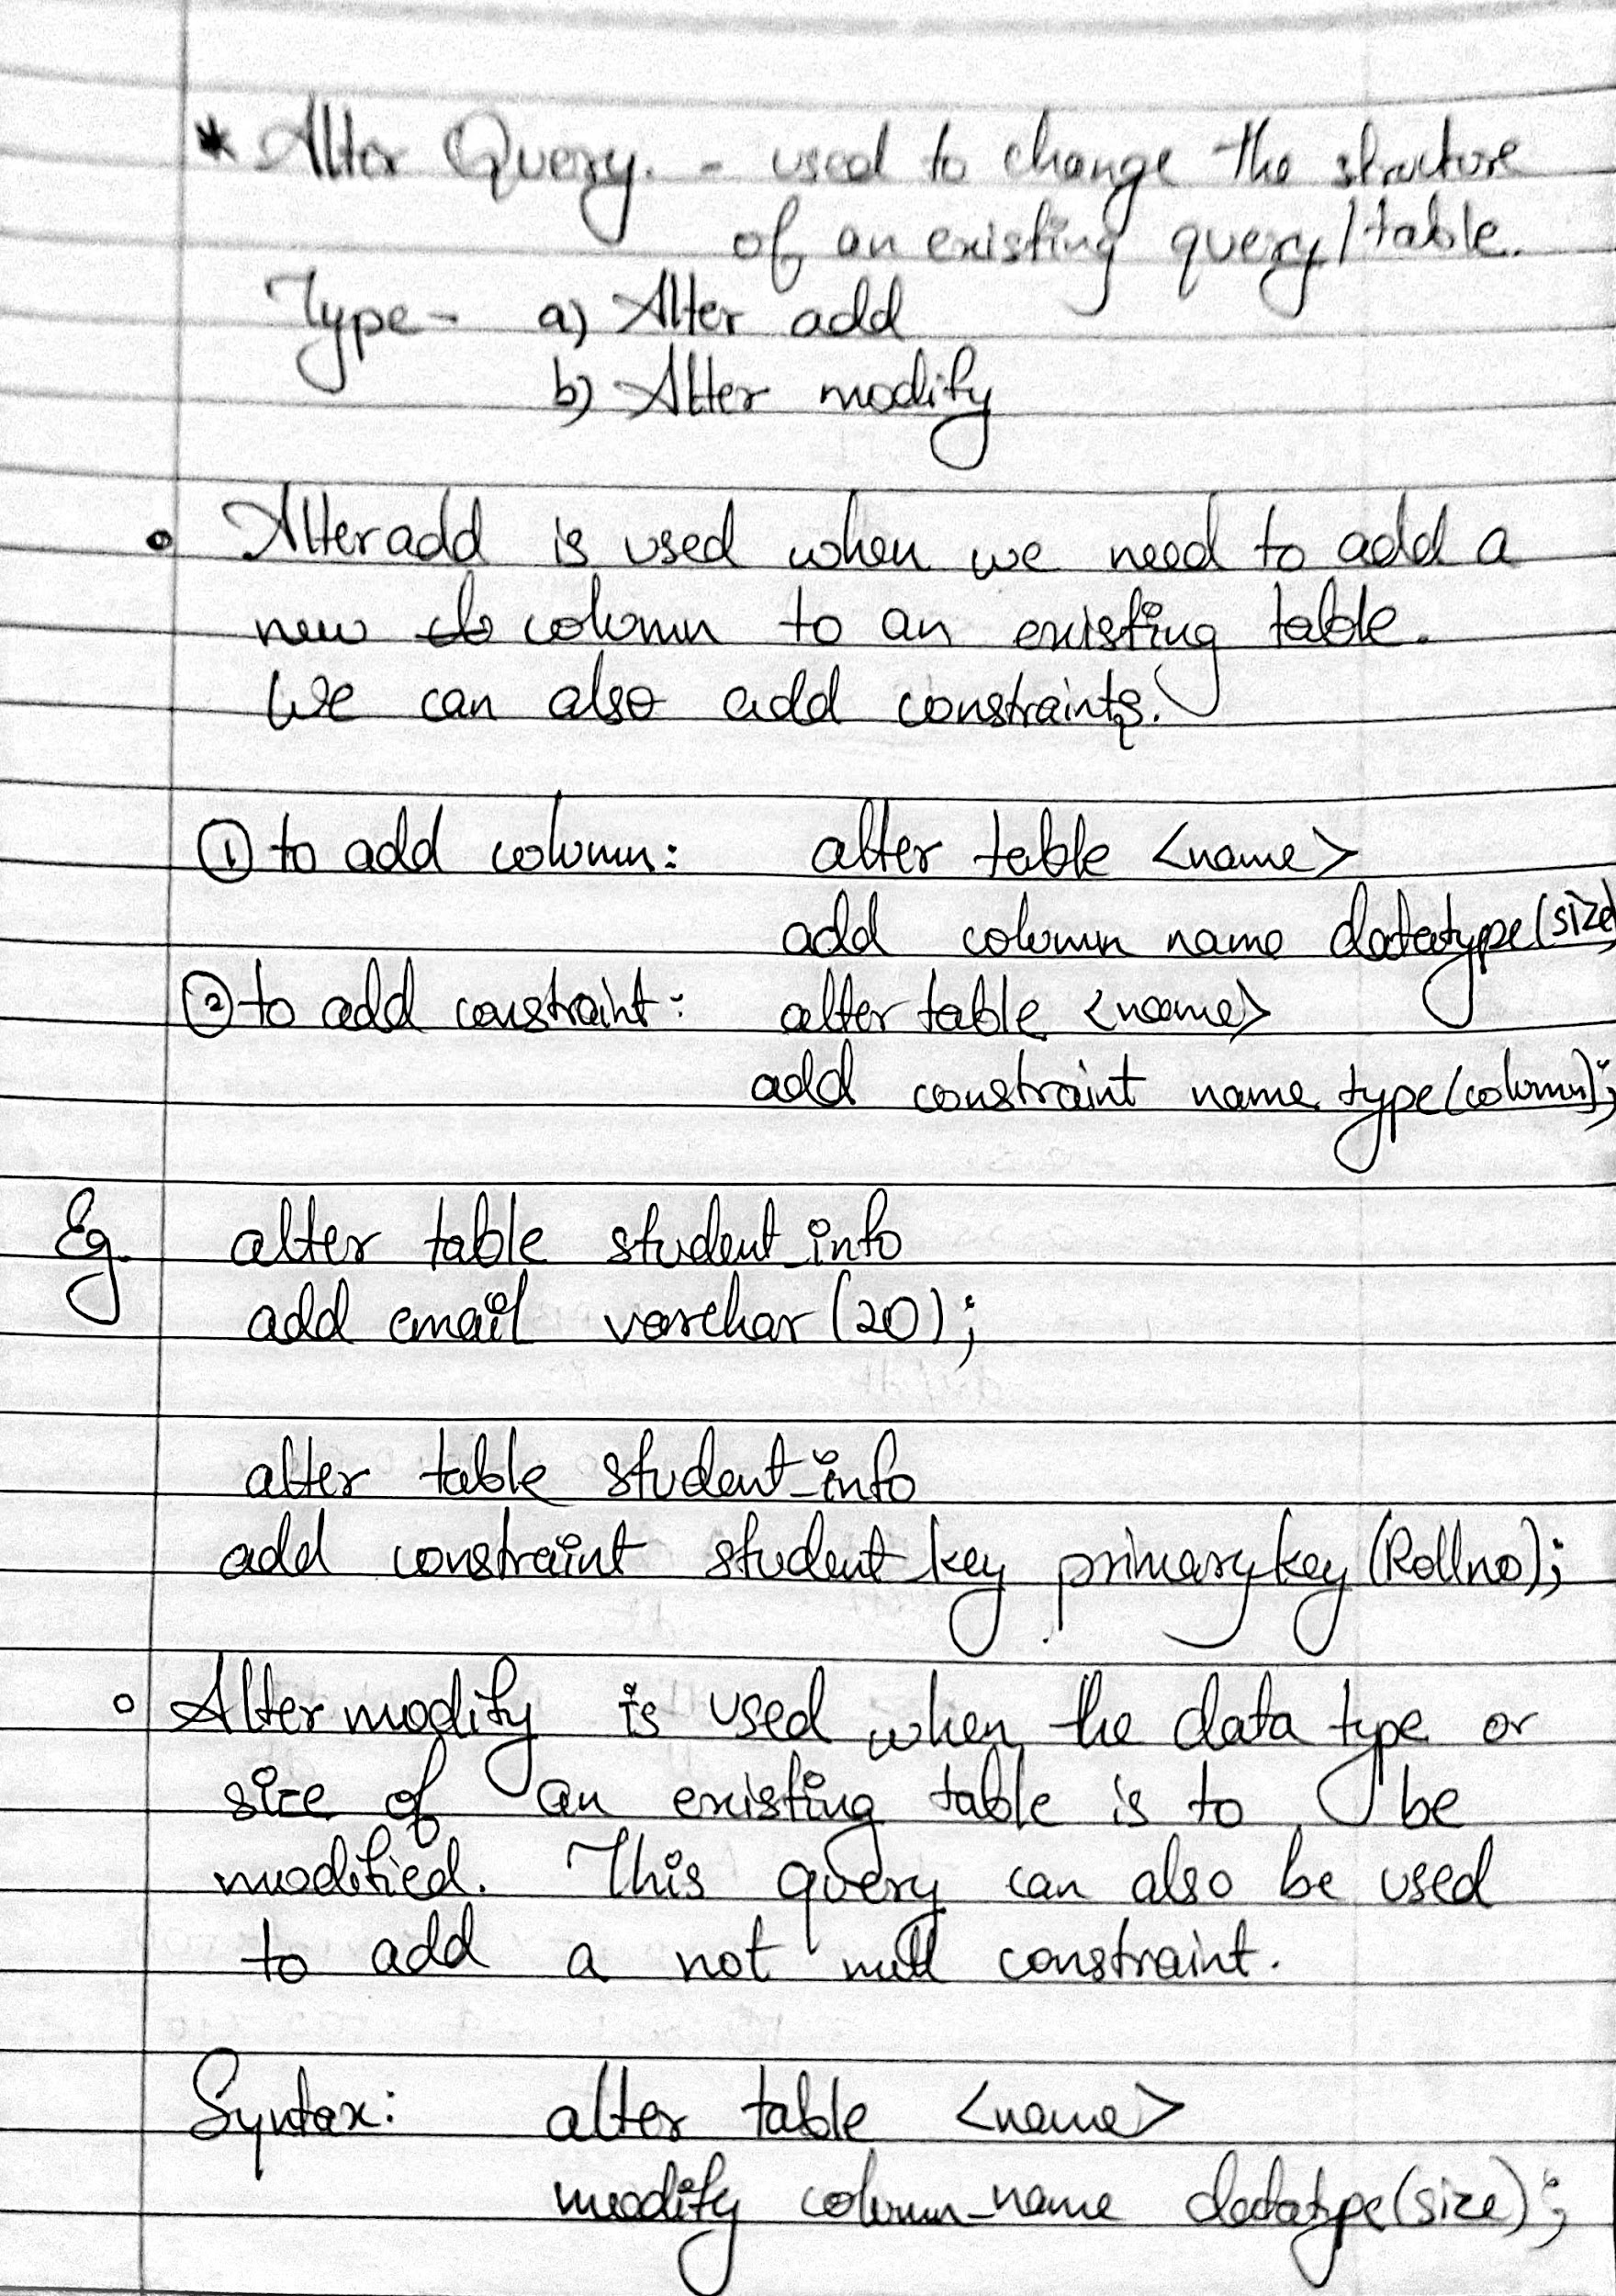 * Alter Query. - used to change the structure
of an existing query/table.
Type - a) Alter add
b) Alter modify
• Alter add is used when we need to add a
new column to an existing table.
We can also add constraints.
① to add column: alter table <name>
add column name datatype(size)
② to add constraint: alter table <name>
add constraint name type(column);
Eg. alter table student_info
add email varchar (20);
alter table student_info
add constraint student_key primary key (Rollno);
• Alter modify is used when the data type or
size of an existing table is to be
modified. This query can also be used
to add a not null constraint.
Syntax: alter table <name>
modify column_name datatype(size);